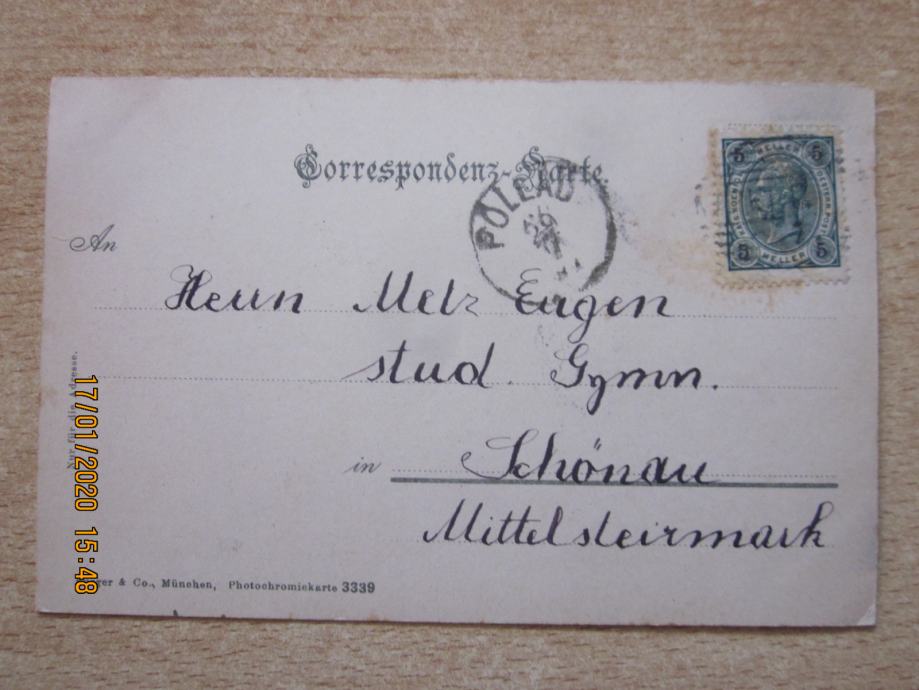 Correspondenz-Karte.
5 HELLER 5
5 HELLER 5
PÖLLAU
An
Herrn Metz Eugen
stud. Gymn.
in Schönau
Mittelsteirmark
Nur für die Adresse.
& Co., München, Photochromiekarte 3339
17/01/2020 15:48